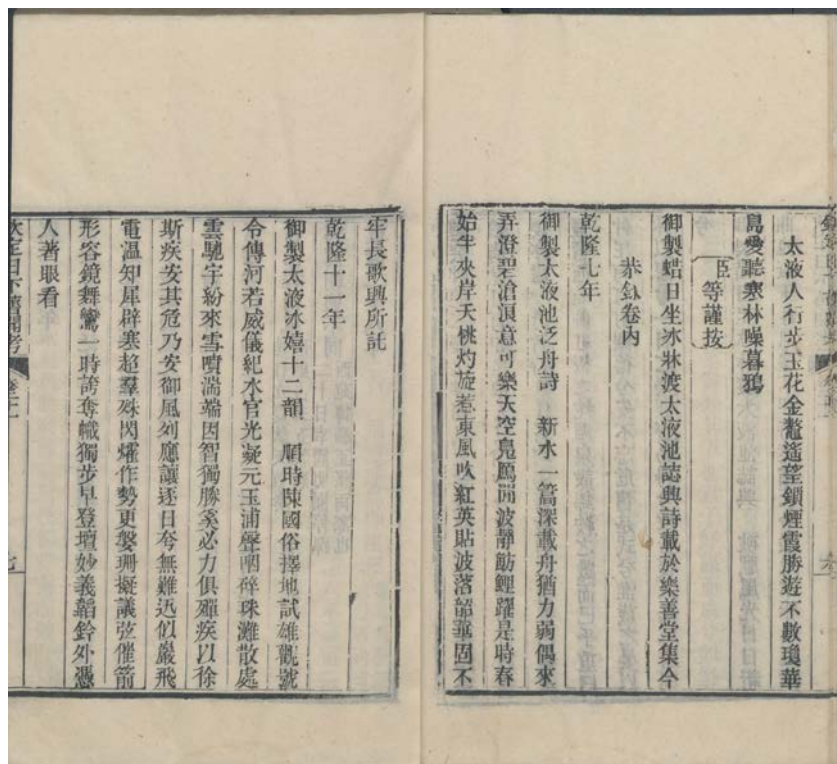 太液人行步玉花金鰲遙望鎖煙霞勝遊不數瓊華
島愛聽寒林噪暮鴉
臣等謹按
御製蜡日坐冰牀渡太液池誌興詩載於樂善堂集今
恭録卷内
乾隆七年
御製太液池泛舟詩 新水一篙深載舟猶力弱偶來
弄澄碧滄溟意可樂天空鳧鴈開波靜魴鯉躍是時春
始半夾岸夭桃灼旋惹東風吹紅英貼波落韶華固不
牢長歌興所託
乾隆十一年
御製太液冰嬉十二韻 順時陳國俗擇地試雄觀號
令傳河若威儀紀水官光凝元玉浦聲
碎珠灘散處
雲馳宇紛來雪噴湍端因智獨勝奚必力俱殫疾以徐
斯疾安其危乃安御風列應讓逐日夸無難迅似巖飛
電溫知犀辟寒超羣殊閃爚作勢更媻珊擬議弦催箭
形容鏡舞鸞一時誇奪幟獨步早登壇妙義韜鈐外憑
人著眼看
欽定日下舊聞考
七